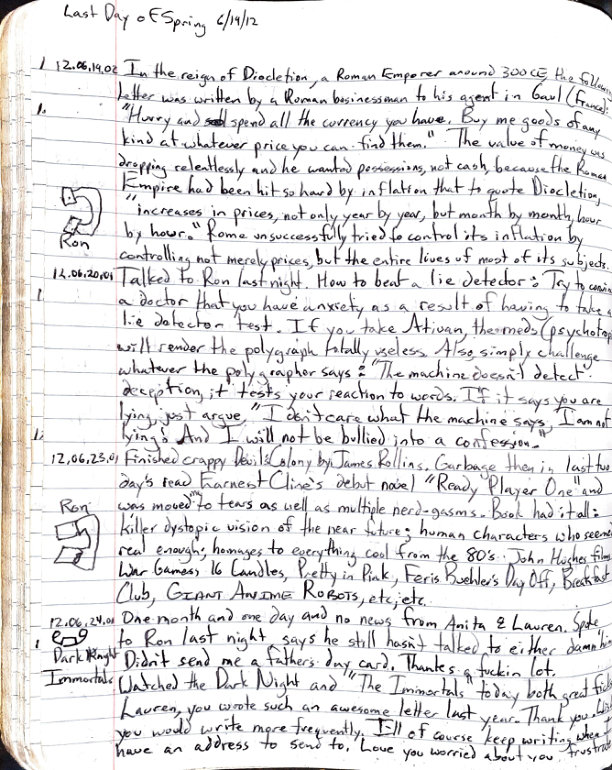 Last Day of Spring 6/19/12
1 12.06.19.02 In the reign of Diocletion, a Roman Emporer around 300 CE, the
letter was written by a Roman businessman to his agent in Gaul (France:
1. "Hurry and spend all the currency you have. Buy me goods of any
kind at whatever price you can find them." The value of money was
dropping relentlessly and he wanted possessions, not cash, because the Roman
Empire had been hit so hard by inflation that to quote Diocletion,
"increases in prices, not only year by year, but month by month, hour
Ron by hour." Rome unsuccessfully tried to control its inflation by
controlling not merely prices, but the entire lives of most of its subjects.
12.06.20.01 Talked to Ron last night. How to beat a lie detector: Try to
1 a doctor that you have anxiety as a result of having to take a
lie detector test. If you take Ativan, the meds (
will render the polygraph totally useless. Also, simply challenge
whatever the polygrapher says: "The machine doesn't detect
deception, it tests your reaction to words. If it says you are
lying, just argue, "I don't care what the machine says, I am not
1. lying! And I will not be bullied into a confession."
12.06.23.01 Finished crappy Devil's Colony by James Rollins. Garbage then in last two
day's read Earnest Cline's debut novel "Ready Player One" and
Ron was moved my to tears as well as multiple nerd-gasms. Book had it all:
killer dystopic vision of the near future; human characters who seemed
real enough; homages to everything cool from the 80's. John Hughes films
War Games, 16 Candles, Pretty in Pink, Feris Buehler's Day Off, Breakfast
Club, GIANT ANIME ROBOTS, etc, etc.
12.06.24.01 One month and one day and no news from Anita & Lauren. Spoke
1 to Ron last night says he still hasn't talked to either damn him
Dark Knight Didn't send me a fathers day card. Thanks a fuckin lot.
Immortals Watched the Dark Night and "The Immortals" today both great
Lauren, you wrote such an awesome letter last year. Thank you.
you would write more frequently. I'll of course keep writing when I
have an address to send to. Love you worried about you.